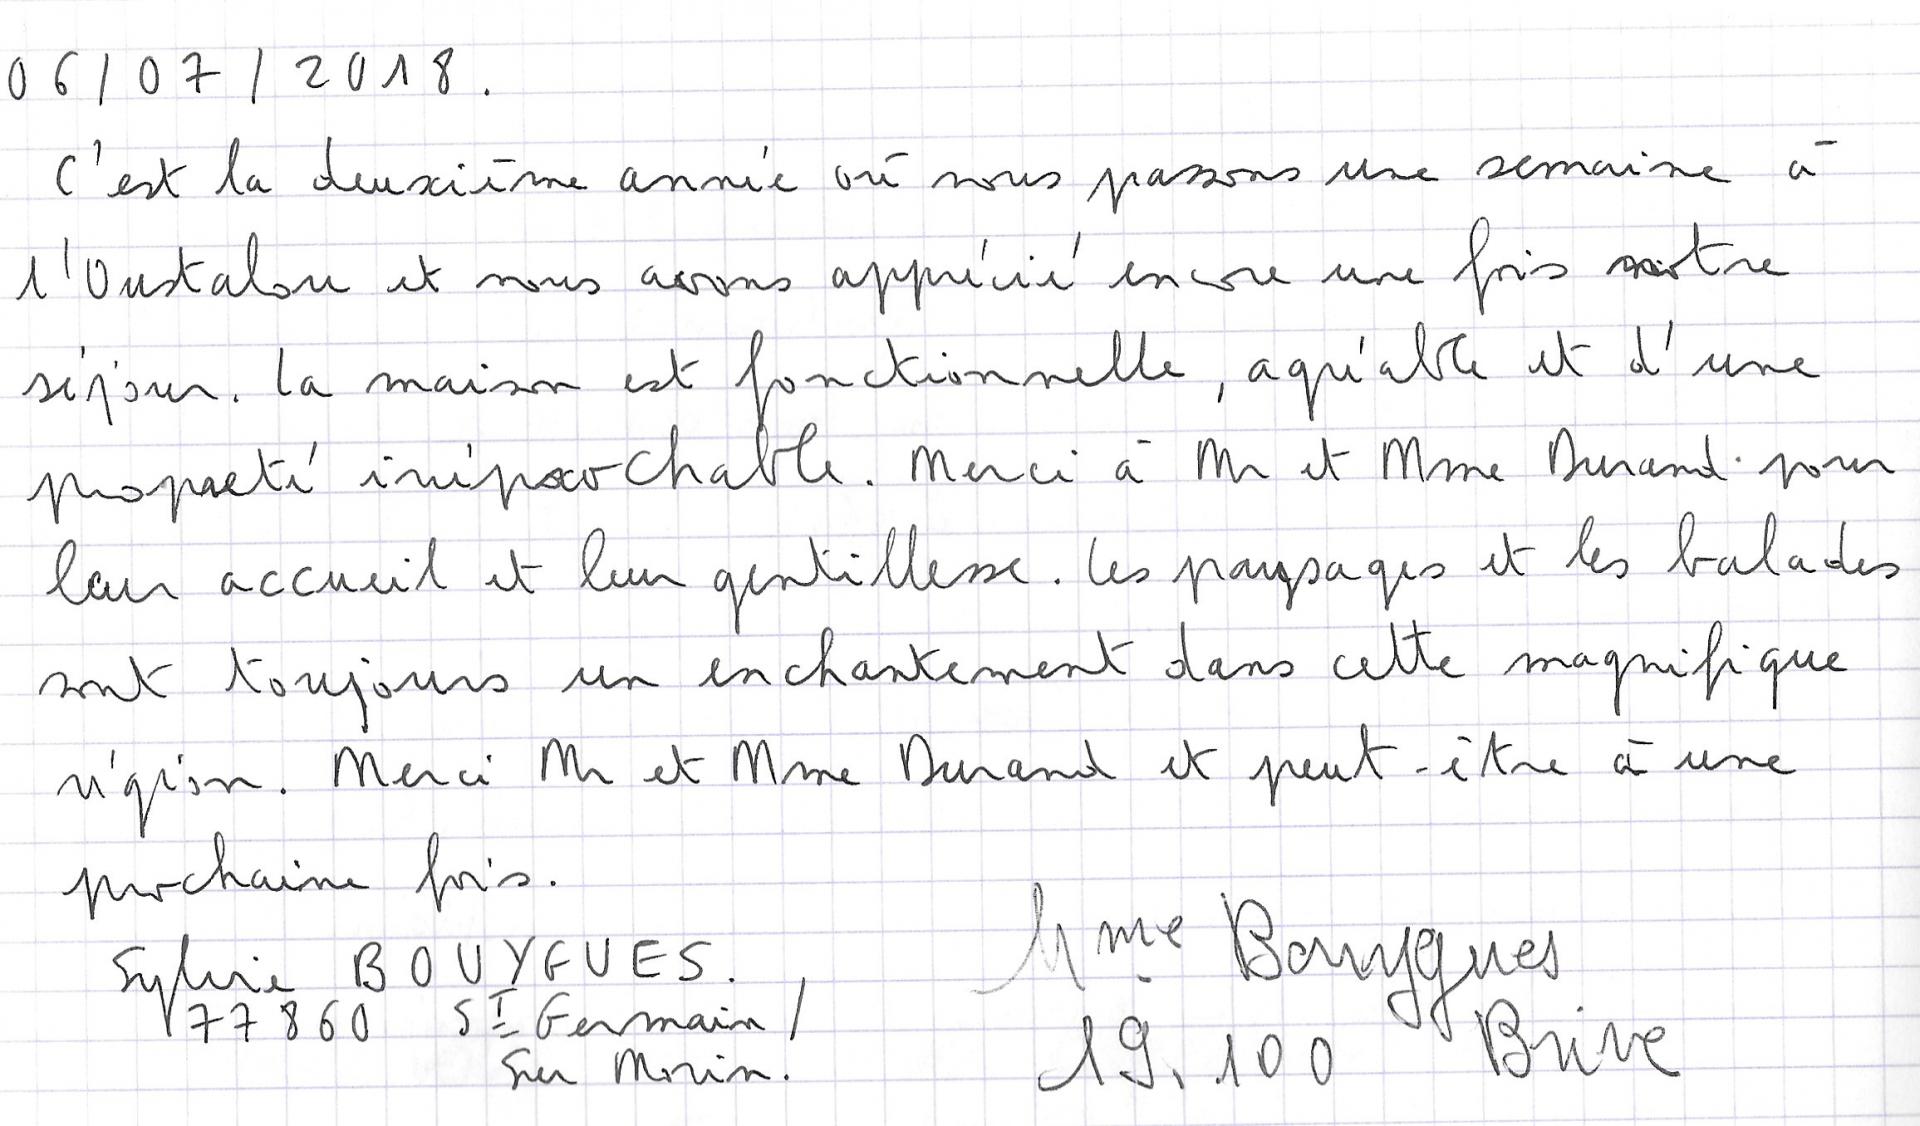 06/07/2018.
C'est la deuxième année où nous passons une semaine à
l'Oustalou et nous avons apprécié encore une fois notre
séjour. La maison est fonctionnelle, agréable et d'une
propreté irréprochable. Merci à Mr et Mme Durand pour
leur accueil et leur gentillesse. Les paysages et les balades
sont toujours un enchantement dans cette magnifique
région. Merci Mr et Mme Durand et peut-être à une
prochaine fois.
Sylvie BOUYGUES.
77860 St Germain /
Sur Morin.
Mme Bouygues
19.100 Brive